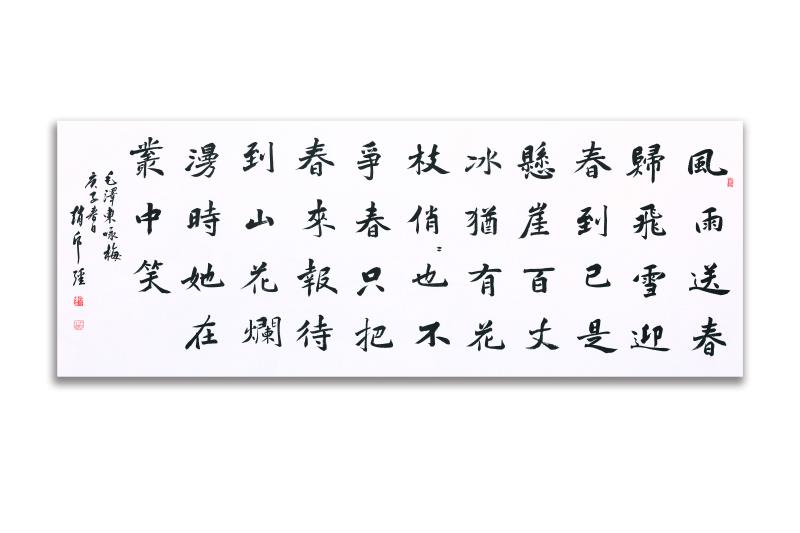 風雨送春
歸飛雪迎
春到已是
懸崖百丈
冰猶有花
枝俏〻也不
爭春只把
春來報待
到山花爛
漫時她在
叢中笑
毛澤東咏梅
庚子春日